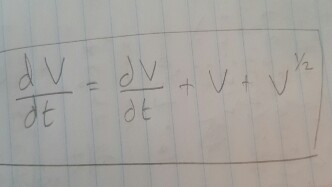 dV/dt = dV/dt + V + V^1/2